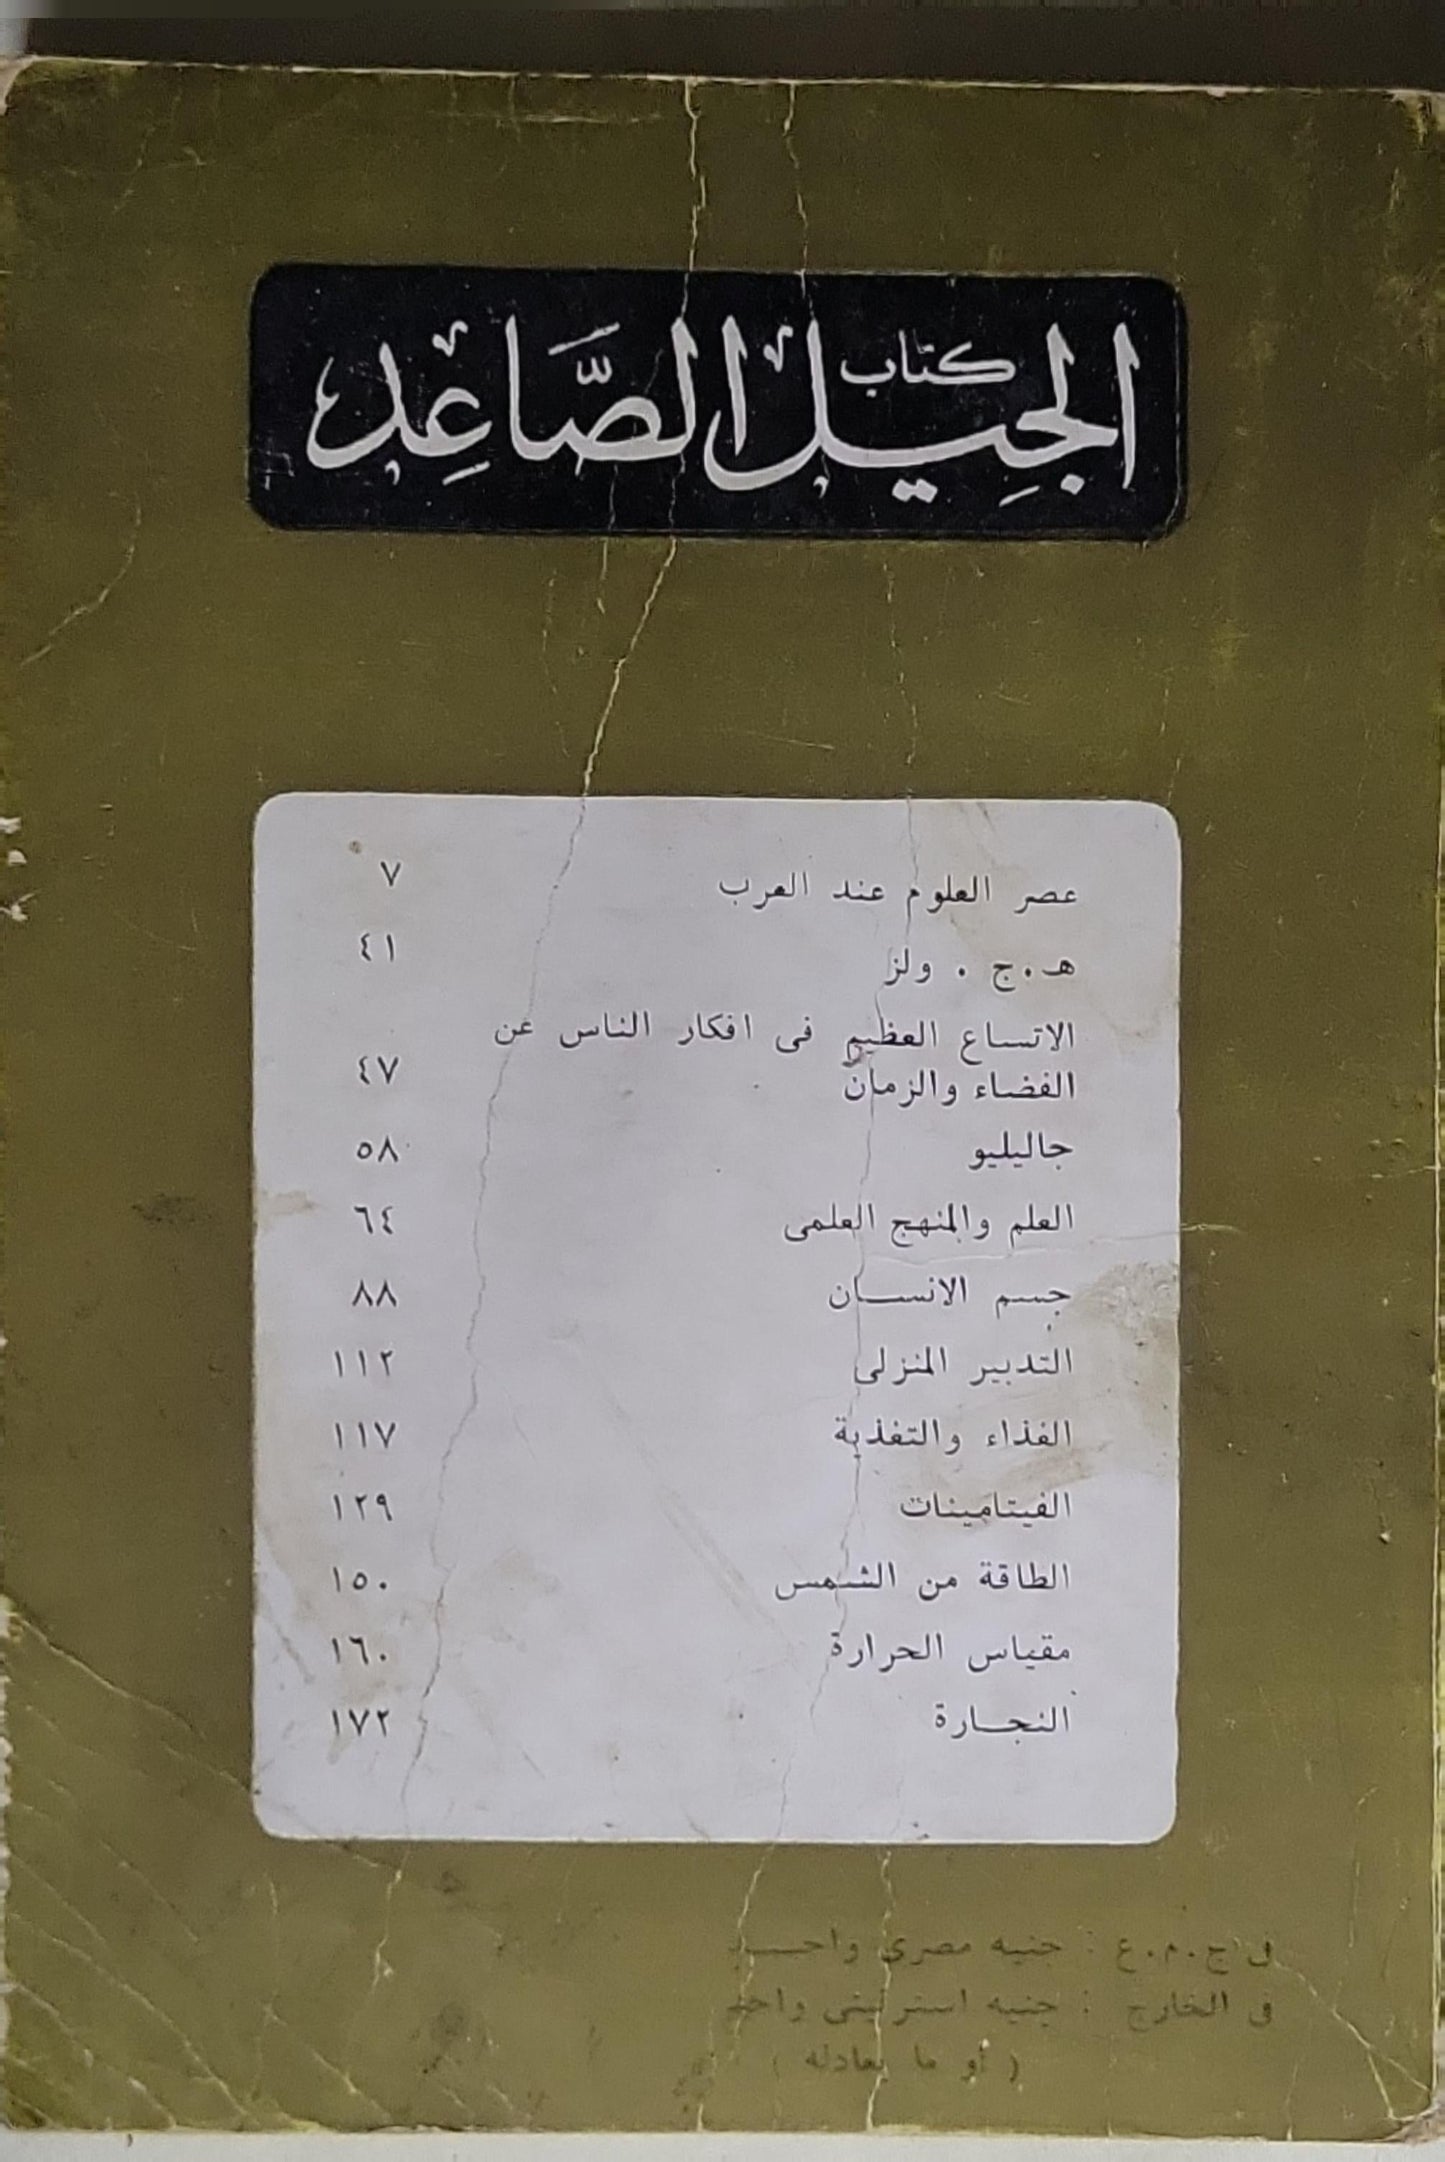 كتاب
الجِيل الصَّاعِد
عصر العلوم عند العرب ٧
هـ . ج . ولز ٤١
الاتساع العظيم فى افكار الناس عن
الفضاء والزمان ٤٧
جاليليو ٥٨
العلم والمنهج العلمى ٦٤
جسم الانســـان ٨٨
التدبير المنزلى ١١٢
الغذاء والتغذية ١١٧
الفيتامينات ١٢٩
الطاقة من الشمس ١٥٠
مقياس الحرارة ١٦٠
النجـــارة ١٧٢
فى ج.م.ع : جنيه مصرى واحـــد
فى الخارج : جنيه استرلينى واحد
( أو ما يعادله )